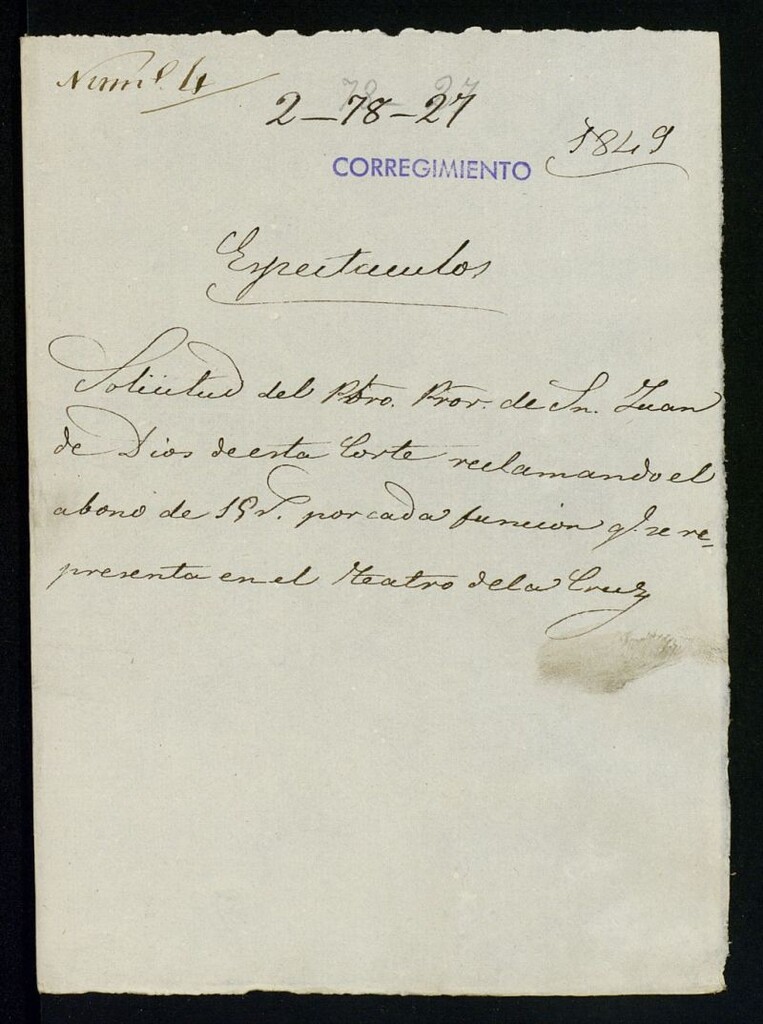 Numº. 4
78-27
2-78-27
1849
CORREGIMIENTO
Espectaculos
Solicitud del Pbro. Pror. de Sn. Juan
de Dios de esta Corte reclamando el
abono de 15 rs. por cada funcion q.e se re-
presenta en el Teatro de la Cruz